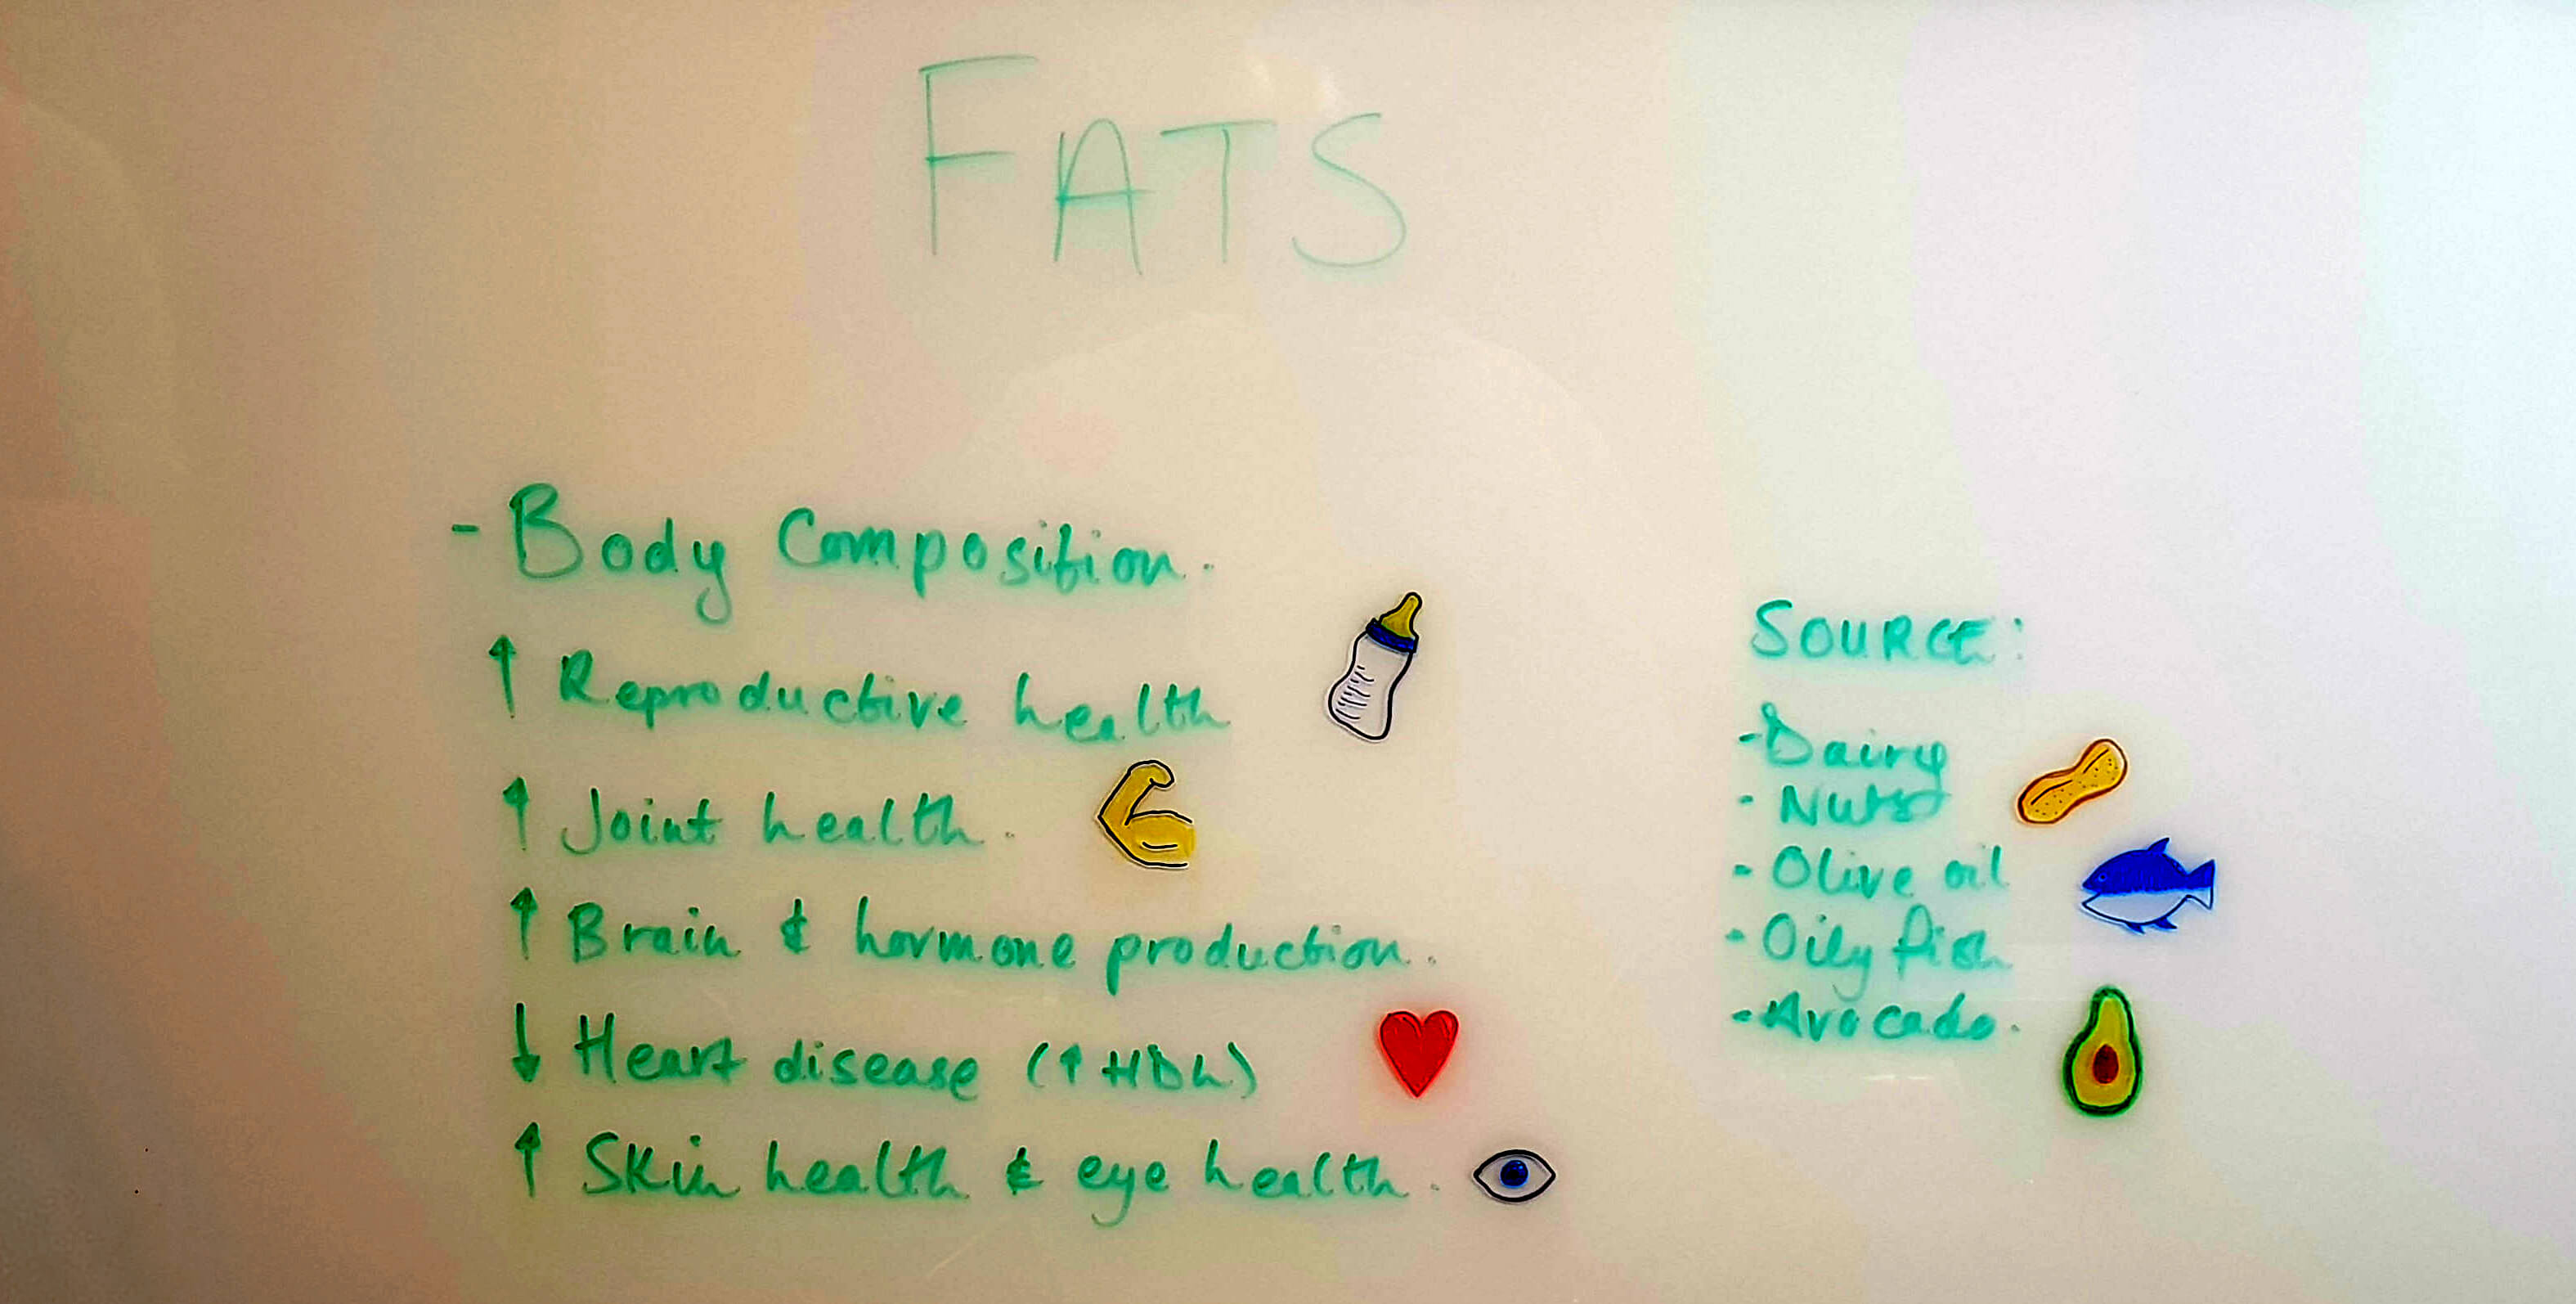 FATS
- Body Composition.
↑ Reproductive health
↑ Joint health.
↑ Brain & hormone production.
↓ Heart disease (↑ HDL)
↑ Skin health & eye health.
SOURCE:
- Dairy
- Nuts
- Olive oil
- Oily fish
- Avocado.